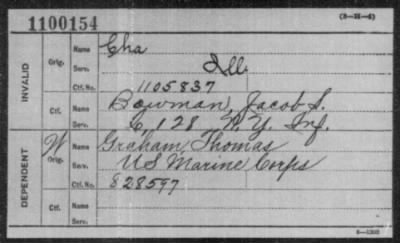 1100154 (3-35-5)
INVALID Orig. Name Cha
Serv. Ill.
Ctf. No. 1105837
Ctf. Name Bowman, Jacob S.
Serv. C 128 N.Y. Inf.
DEPENDENT W Orig. Name Graham, Thomas
Serv. US Marine Corps
Ctf. No. 828597
Ctf. Name
Serv.